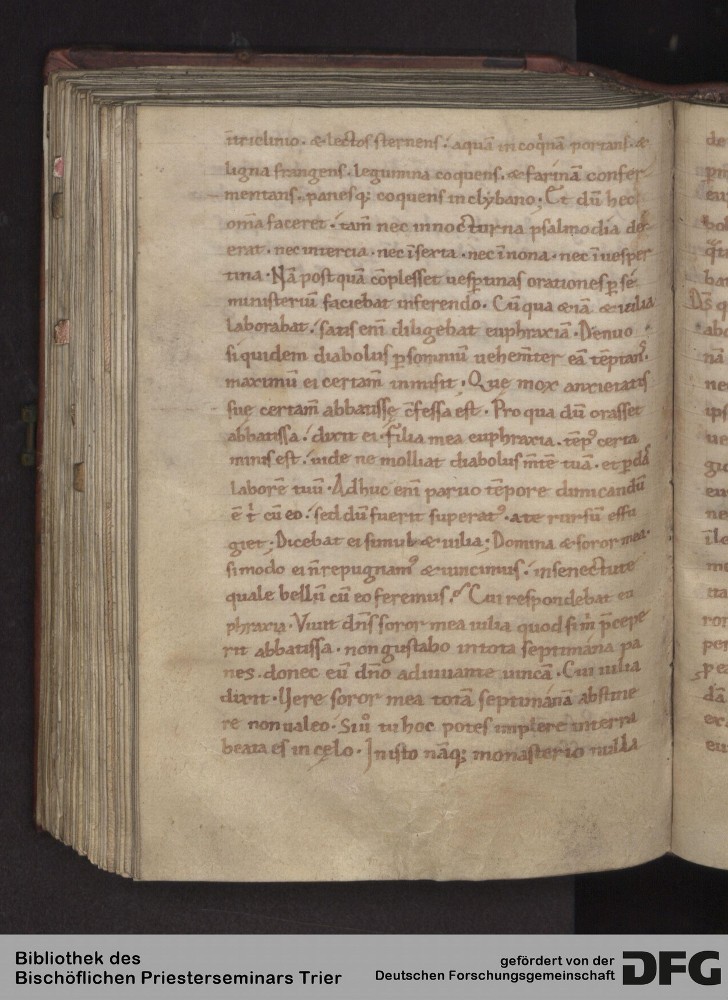 ītriclinio · & lectos sternens ; aquā in coq̇nā portans · &
ligna frangens · legumina coquens · & farinā confer
mentans · panesq; coquens in clybano ; Et dū hec
om̄a faceret · tam̄ nec in nocturna psalmodia de
erat · nec intercia · nec ī sexta · nec ī nona · nec ī vesper
tina · Nā postquā cōplesset uesptinas orationes p se
ministeriū faciebat inferendo · Cū qua &iā & iulia
laborabat ; satis enī diligebat euphraxiā · Denuo
siquidem diabolus p somnium uehem̄ter eā tēptans ·
maximū ei certam̄ inmisit · Que mox anxietatis
sue certam̄ abbatisse c̄fessa est · Pro qua dū orasset
abbatissa ; dixit ei · Filia mea euphraxia · tēp' certa
minis est ; uide ne molliat diabolus m̄tē tuā · et pdas
laborē tuū · Adhuc enī paruo tēpore dimicandū
ē t cū eo ; sed dū fuerit superat' · a te rursū effu
giet ; Dicebat ei simul & iulia ; Domina & soror mea ·
si modo ei n̄ repugnam' & uincimus ; in senectute
quale bellū cū eo feremus ; Cui respondebat eu
phraxia · Viuit dn̄s soror mea iulia quod si m̄ p̄cepe
rit abbatissa · non gustabo in tota septimana pa
nes · donec eū dn̄o adiuuante uincā · Cui iulia
dixit · Uere soror mea totā septimanā abstine
re non ualeo · Si u° tu hoc potes implere in terra
beata es in celo · In isto nāq; monasterio nulla
de
eu
ne
eu
Bibliothek des
Bischöflichen Priesterseminars Trier
gefördert von der
Deutschen Forschungsgemeinschaft
DFG